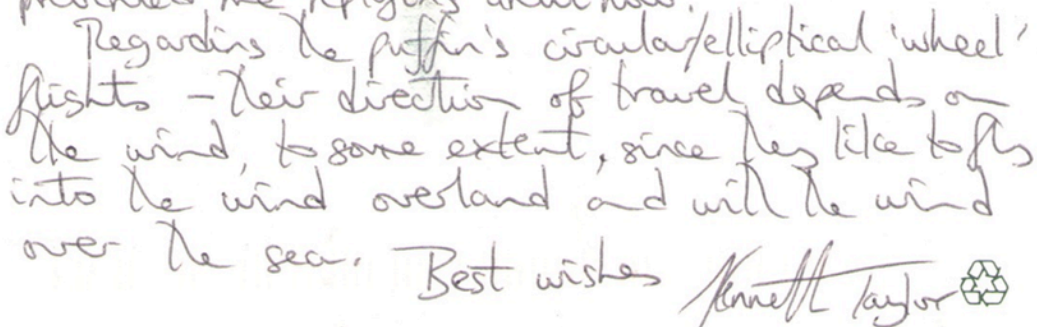 Regarding the puffin's circular/elliptical 'wheel'
flights - their direction of travel depends on
the wind, to some extent, since they like to fly
into the wind overland and with the wind
over the sea. Best wishes Kenneth Taylor